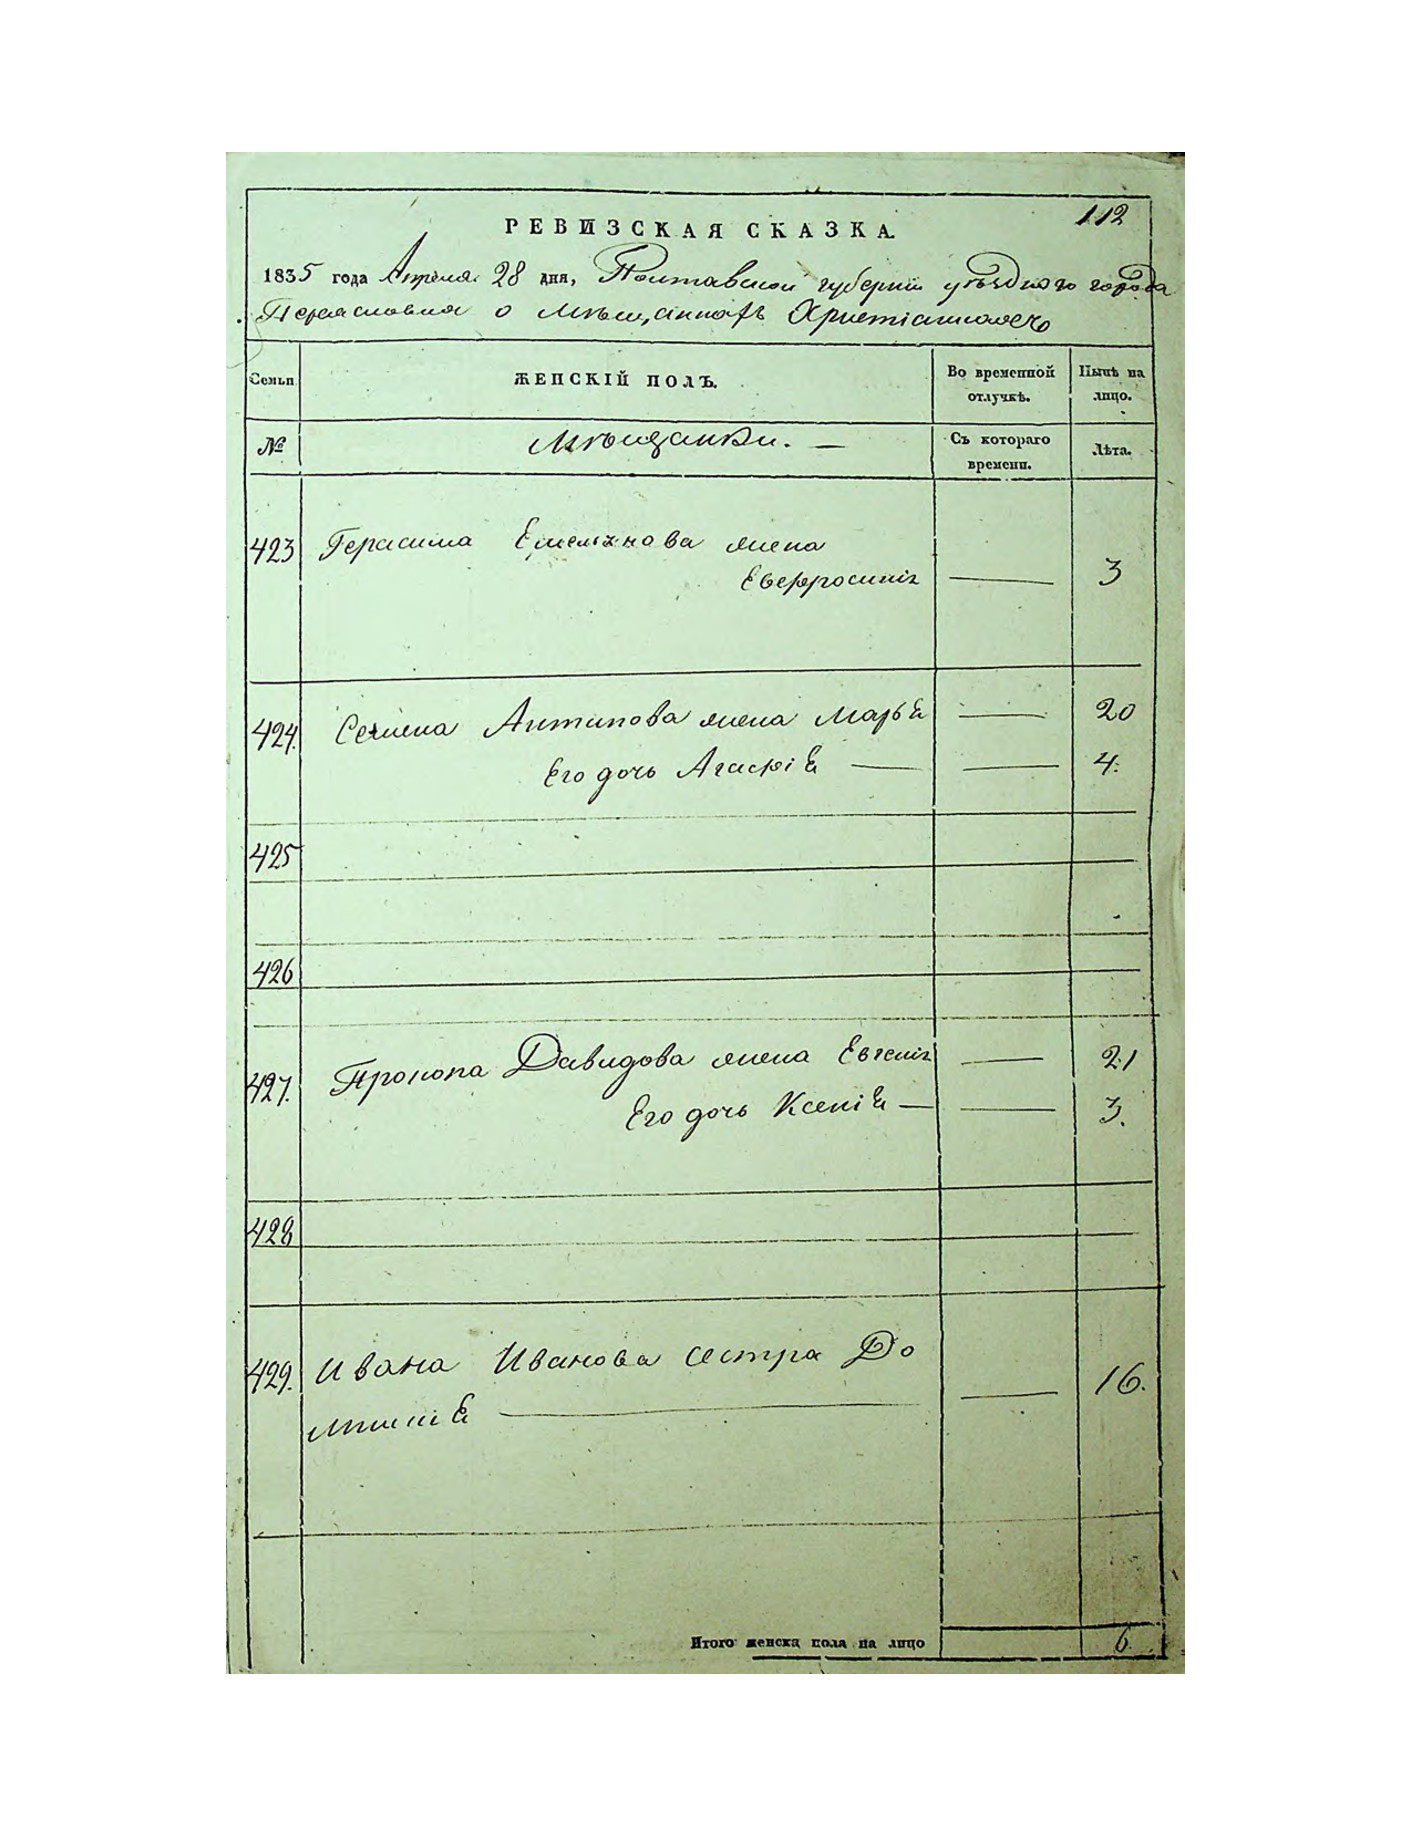 112
РЕВИЗСКАЯ СКАЗКА.
1835 года Апреля 28 дня, Полтавской губернии уѣзднаго города
Переяславля о мѣщанахъ Христіанахъ
Семьи ЖЕНСКІЙ ПОЛЪ. Во временной отлучкѣ. Нынѣ на лицо.
№ Мѣщанки. — Съ котораго времени. Лѣта.
423 Герасима Емельянова жена
Евфросинія — 3
424. Семена Антипова жена Марья — 20
Его дочь Агафія — — 4.
425
426
427. Прокопа Давидова жена Евгенія — 21
Его дочь Ксенія — — 3.
428
429. Ивана Иванова сестра До
мникія — — 16.
Итого женска пола на лицо 6